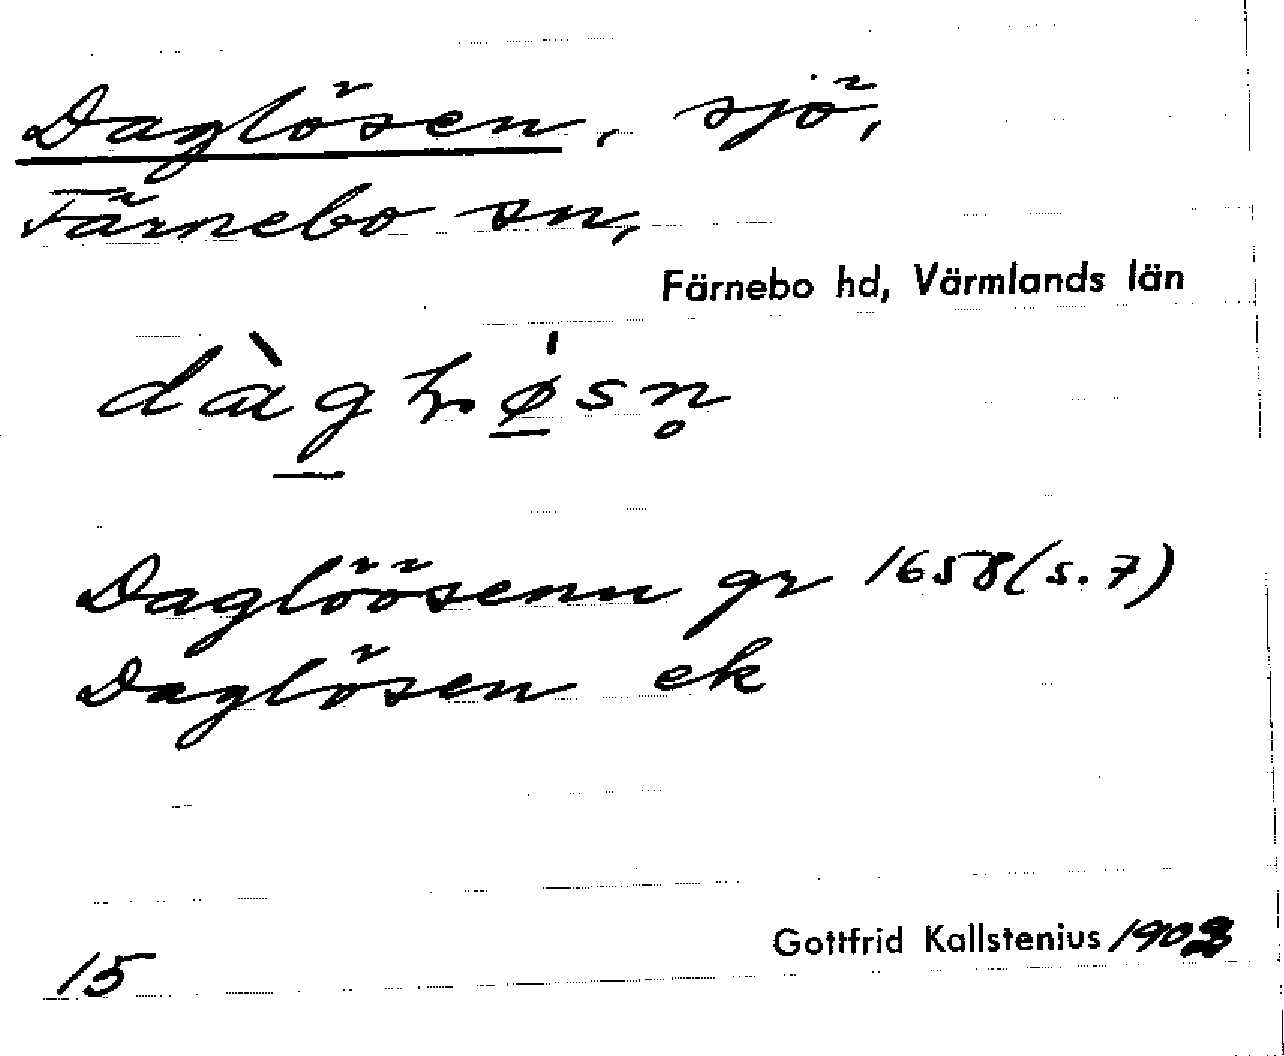 Daglösen, sjö,
Färnebo sn,
Färnebo hd, Värmlands län
Daglöösenn gr 1658 (s. 7)
Daglösen ek
Gottfrid Kallstenius 1903
15